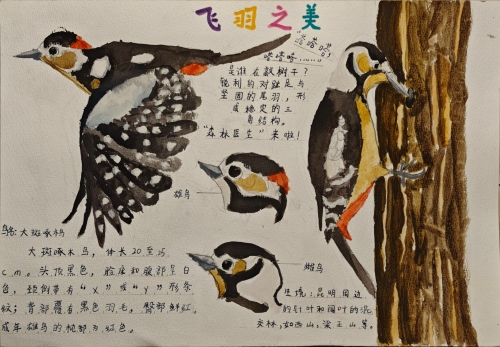 飞羽之美
“嗒嗒嗒,
嗒嗒嗒……”
是谁在敲树干?
锐利的对趾足与
坚固的尾羽,形
成稳定的三
角结构。
“森林医生”来啦!
雄鸟
雌鸟
鸟名:大斑啄木鸟
大斑啄木鸟,体长20至25
cm。头顶黑色,脸庞和腹部呈白
色,颈侧带有“X”或“Y”形条
纹;背部覆有黑色羽毛,臀部鲜红。
成年雄鸟的枕部为红色。
生境:昆明周边
的针叶和阔叶的混
交林,如西山,梁王山等。